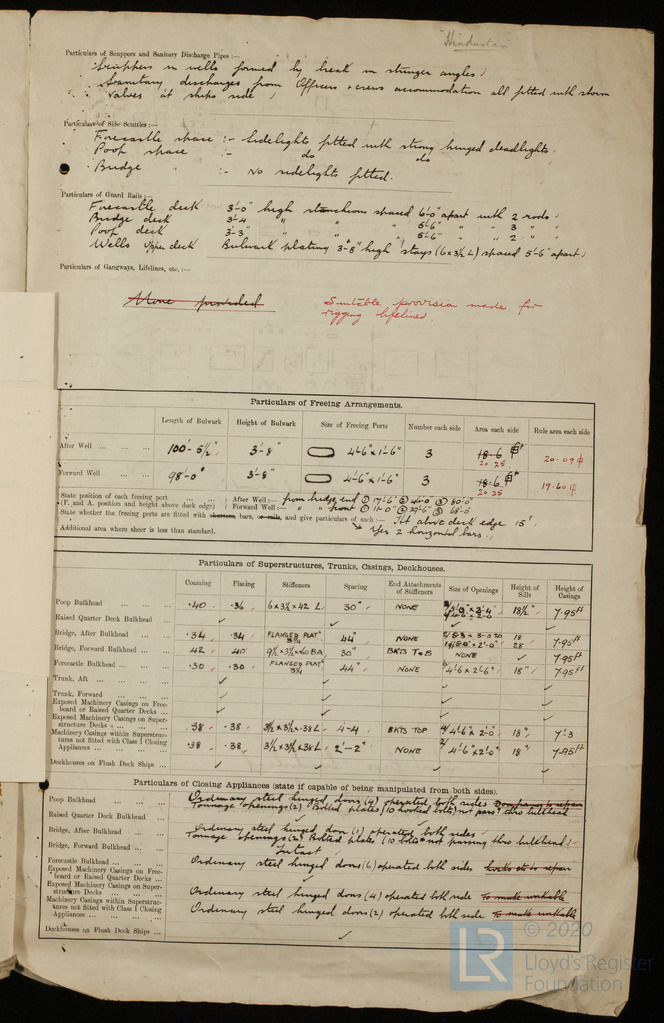 Hindustan
Particulars of Scuppers and Sanitary Discharge Pipes :—
Scuppers in wells formed by break in stringer angles
Sanitary discharges from Officers & crews accommodation all fitted with storm
valves at ships side
Particulars of Side Scuttles:—
Forecastle space :- Sidelights fitted with strong hinged deadlights.
Poop space :- do do
Bridge " :- No sidelights fitted.
Particulars of Guard Rails :—
Forecastle deck 3'-0" high stanchions spaced 6'-0" apart with 2 rods
Bridge deck 3'-4 " " " 5'-6" " " 3 " "
Poop deck 3'-3" " " " 5'-6" " " 2 " "
Wells upper deck Bulwark plating 3'-8" high stays (6 x 3½ L) spaced 5'-6" apart
Particulars of Gangways, Lifelines, etc. :—
None provided
Suitable provision made for
rigging lifelines.
Particulars of Freeing Arrangements.
Length of Bulwark Height of Bulwark Size of Freeing Ports Number each side Area each side Rule area each side
After Well ... ... ... 100'-5½" 3'-8" 4'-6" x 1'-6" 3 18.6 20.25 20.09
Forward Well ... ... 98'-0" 3'-8" 4'-6" x 1'-6" 3 18.6 20.25 19.60
State position of each freeing port ... ... After Well :— from bridge end ① 17'-6" ② 46'-0" ③ 80'-0"
(F. and A. position and height above deck edge) Forward Well :— " " front ① 11'-0" ② 29'-6" ③ 68'-0"
State whether the freeing ports are fitted with shutters, bars, or rails, and give particulars of such :— Ht above deck edge 15"
Additional area where sheer is less than standard. Yes 2 horizontal bars.
Particulars of Superstructures, Trunks, Casings, Deckhouses.
Coaming Plating Stiffeners Spacing End Attachments of Stiffeners Size of Openings Height of Sills Height of Casings
Poop Bulkhead ... ... ... .40 .36 6 x 3½ x 42 L 30" NONE 18½" 7.95 ft
Raised Quarter Deck Bulkhead ...
Bridge, After Bulkhead ... ... .34 .34 FLANGED PLATE 44" NONE 18 7.95 ft
Bridge, Forward Bulkhead ... 42 40 30" BKTS T&B NONE 7.95 ft
Forecastle Bulkhead ... ... .30 .30 FLANGED PLATE 44" NONE 4'6 x 2'6" 18" 7.95 ft
Trunk, Aft ... ... ...
Trunk, Forward ... ... ...
Exposed Machinery Casings on Free-
board or Raised Quarter Decks ...
Exposed Machinery Casings on Super-
structure Decks ... ... ... .38 .38 3½ x 3½ x .38 L 4-4 BKTS TOP 4'6" x 2'-0" 18" 7'.3
Machinery Casings within Superstruc-
tures not fitted with Class I Closing
Appliances ... ... ... .38 .38 3½ x 3½ x 38 L 2'-2" NONE 4'6" x 2'0" 18" 7.95 ft
Deckhouses on Flush Deck Ships ...
Particulars of Closing Appliances (state if capable of being manipulated from both sides).
Poop Bulkhead ... ... ... Ordinary steel hinged doors (4) operated both sides
Tonnage openings (2) Bolted plates (10 hooked bolts) not pass'g thro bulkhead
Raised Quarter Deck Bulkhead ...
Bridge, After Bulkhead ... ... Ordinary steel hinged door (1) operated both sides
Tonnage openings (2) Bolted plates (10 bolts not passing thro bulkhead)
Bridge, Forward Bulkhead ... Intact
Forecastle Bulkhead ... ... Ordinary steel hinged doors (6) operated both sides
Exposed Machinery Casings on Free-
board or Raised Quarter Decks ...
Exposed Machinery Casings on Super-
structure Decks ... ... Ordinary steel hinged doors (4) operated both side To make workable
Machinery Casings within Superstruc-
tures not fitted with Class I Closing
Appliances ... ... ... Ordinary steel hinged doors (2) operated both side To make workable
Deckhouses on Flush Deck Ships ...
© 2020
LR Lloyd's Register
Foundation